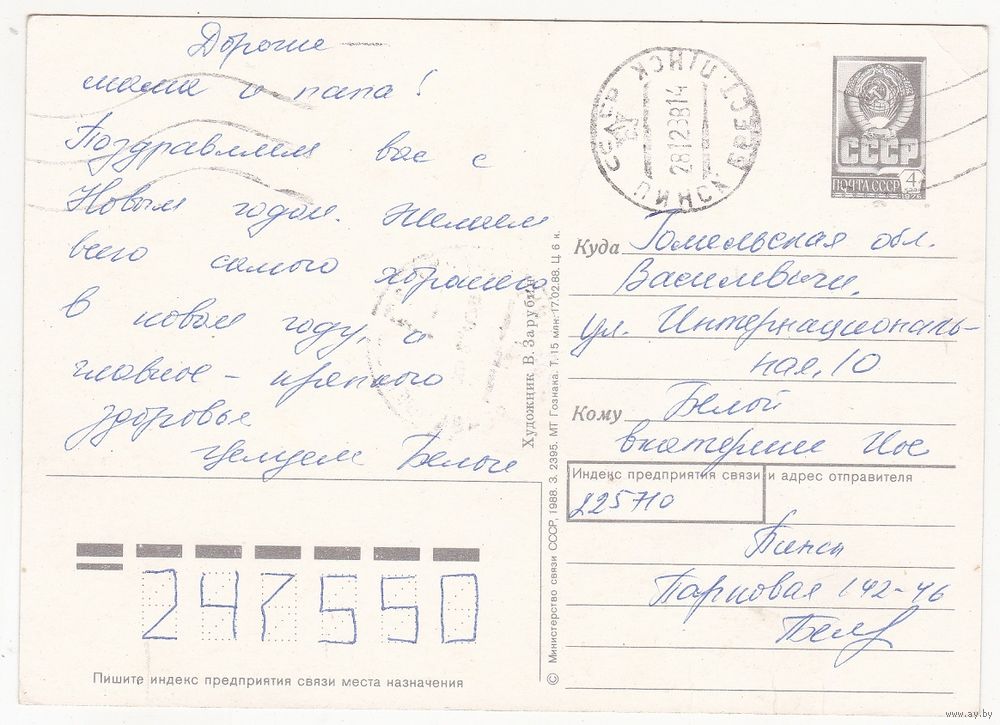 Дорогие
мама и папа!
Поздравляем вас с
Новым годом. Желаем
всего самого хорошего
в новом году, а
главное - крепкого
здоровья
Целуем Белые
Пишите индекс предприятия связи места назначения
247550
Художник В. Зарубин
© Министерство связи СССР, 1988. З. 2395. МТ Гознака. Т. 15 млн. 17.02.88. Ц. 6 к.
ПІНСК БРЕСТ
ПИНСК
28128814
СССР
ПОЧТА СССР 4
Куда Гомельская обл.
Василевичи,
ул. Интернациональ-
ная, 10
Кому Белой
Екатерине
Индекс предприятия связи и адрес отправителя
225710
Пинск
Парковая 142-46
www.ay.by